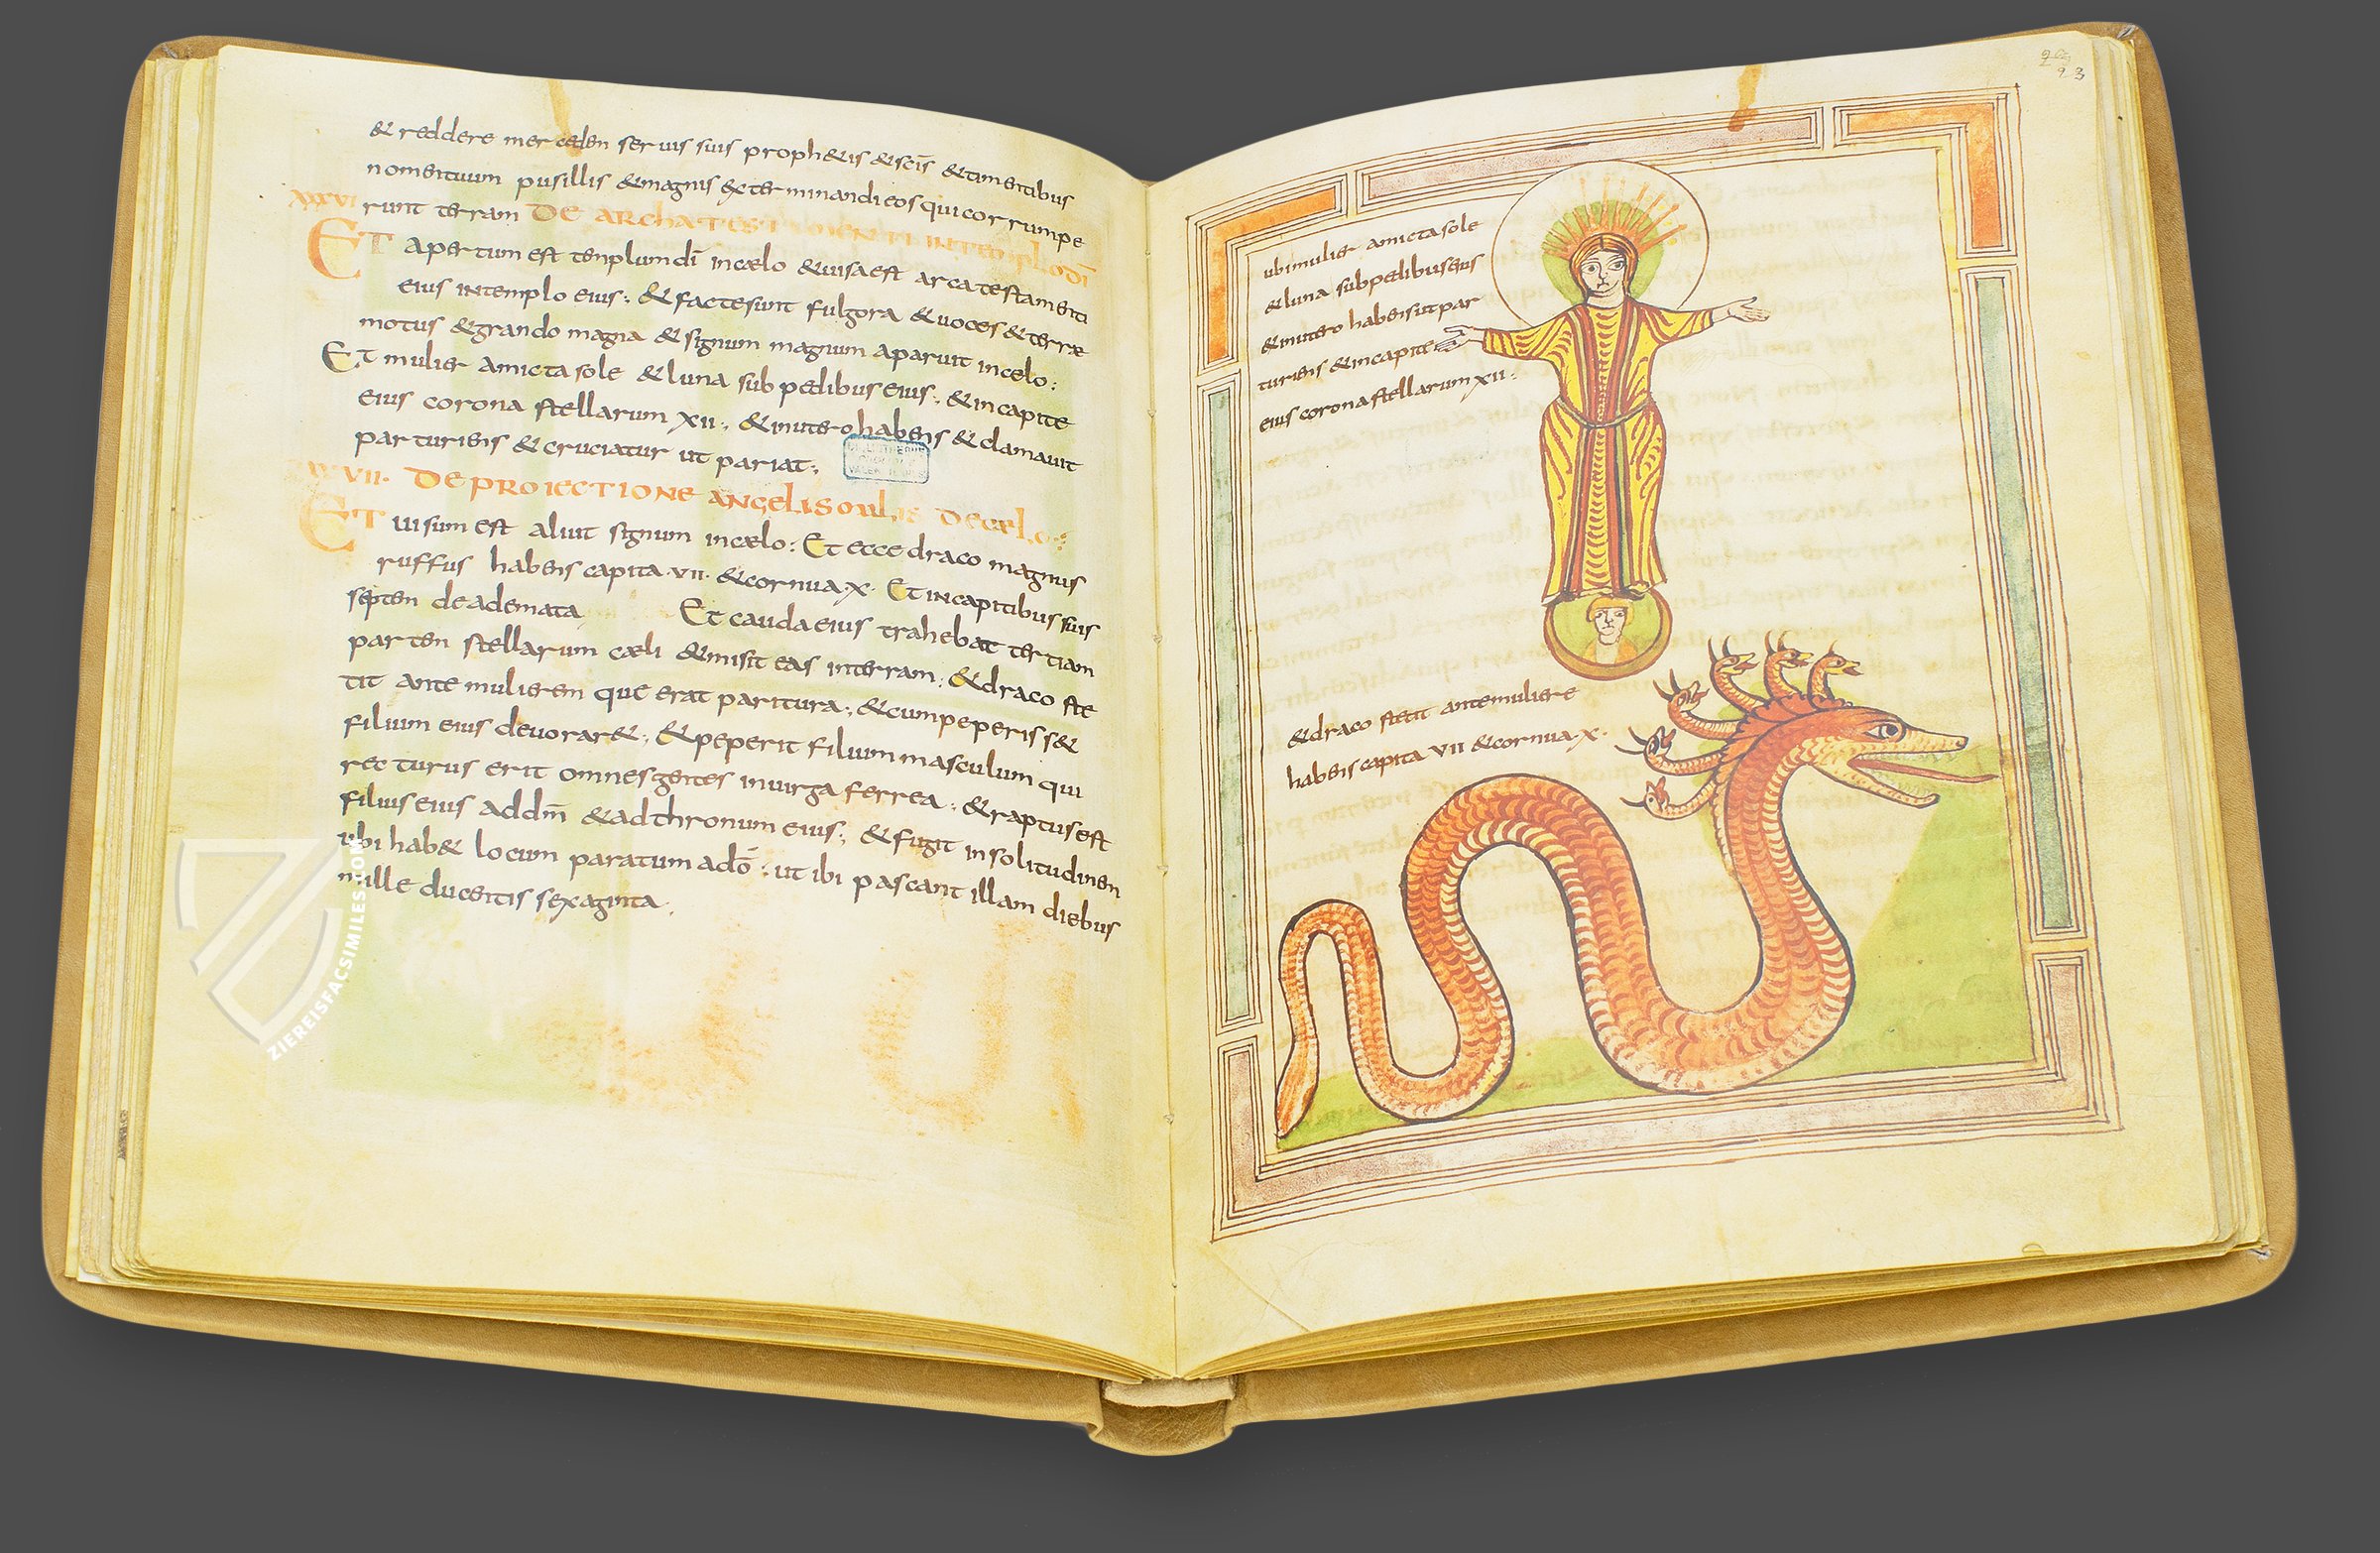 & reddere mercedem seruis suis proph&is &scīs &timentibus
nomentuum pusillis &magnis &exterminandi eos qui corrumpe
XXVI runt terram DE ARCHA TESTAMENTI IN TEMPLO DĪ
ET apertum est templum dī incælo &uisa est arca testamenti
eius intemplo eius; & facte sunt fulgora & uoces & terræ
motus & grando magna & signum magnum aparuit incelo:
Et mulier amicta sole & luna sub pedibus eius; & incapite
eius corona stellarum XII; & inutero habens & clamauit
parturiens & cruciatur ut pariat;
VII. DE PROIECTIONE ANGELI DE CÆLO
ET uisum est aliut signum incælo: Et ecce draco magnus
ruffus habens capita ·VII· & cornua ·X· Et incapitibus suis
septem deademata Et cauda eius trahebat tertiam
partem stellarum cæli & misit eas interram; & draco ste
tit ante mulierem que erat paritura; & cum peperiss&
filium eius deuorar&; & peperit filium masculum qui
recturus erit omnes gentes inuirga ferrea; & raptus est
filius eius ad dm̄ & ad thronum eius; & fugit insolitudinem
ubi hab& locum paratum adō; ut ibi pascant illam diebus
mille ducentis sexaginta
ZIEREISFACSIMILES.COM
93
ubi mulier amicta sole
& luna sub pedibus eius
& inutero habens & par
turiens & incapite
eius corona stellarum XII;
& draco stetit ante muliere
habens capita VII & cornua ·X·